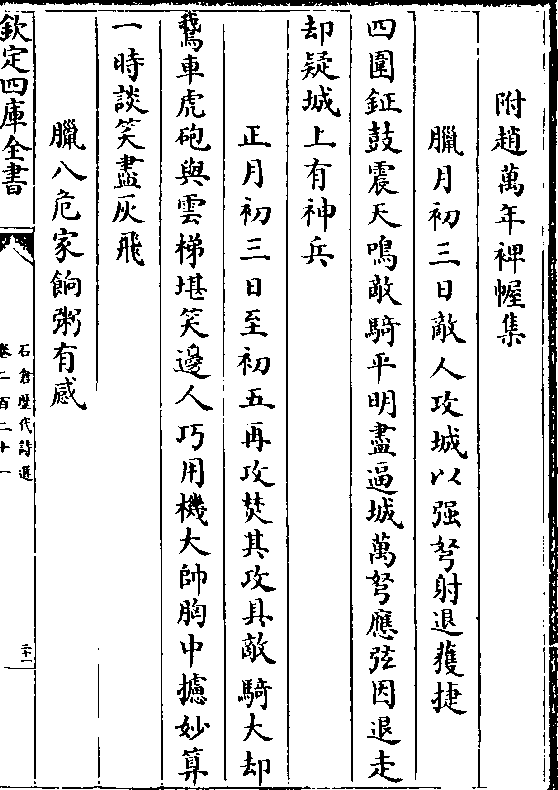 附趙萬年裨幄集
臘月初三日敵人攻城以强弩射退獲捷
四圍鉦鼓震天鳴敵騎平明盡逼城萬弩應弦因退走
却疑城上有神兵
正月初三日至初五再攻焚其攻具敵騎大却
鵞車虎砲與雲梯堪笑邊人巧用機大帥胸中攄妙算
一時談笑盡灰飛
臘八危家餉粥有感
欽定四庫全書
石倉歴代詩選
卷二百二十一
三十一